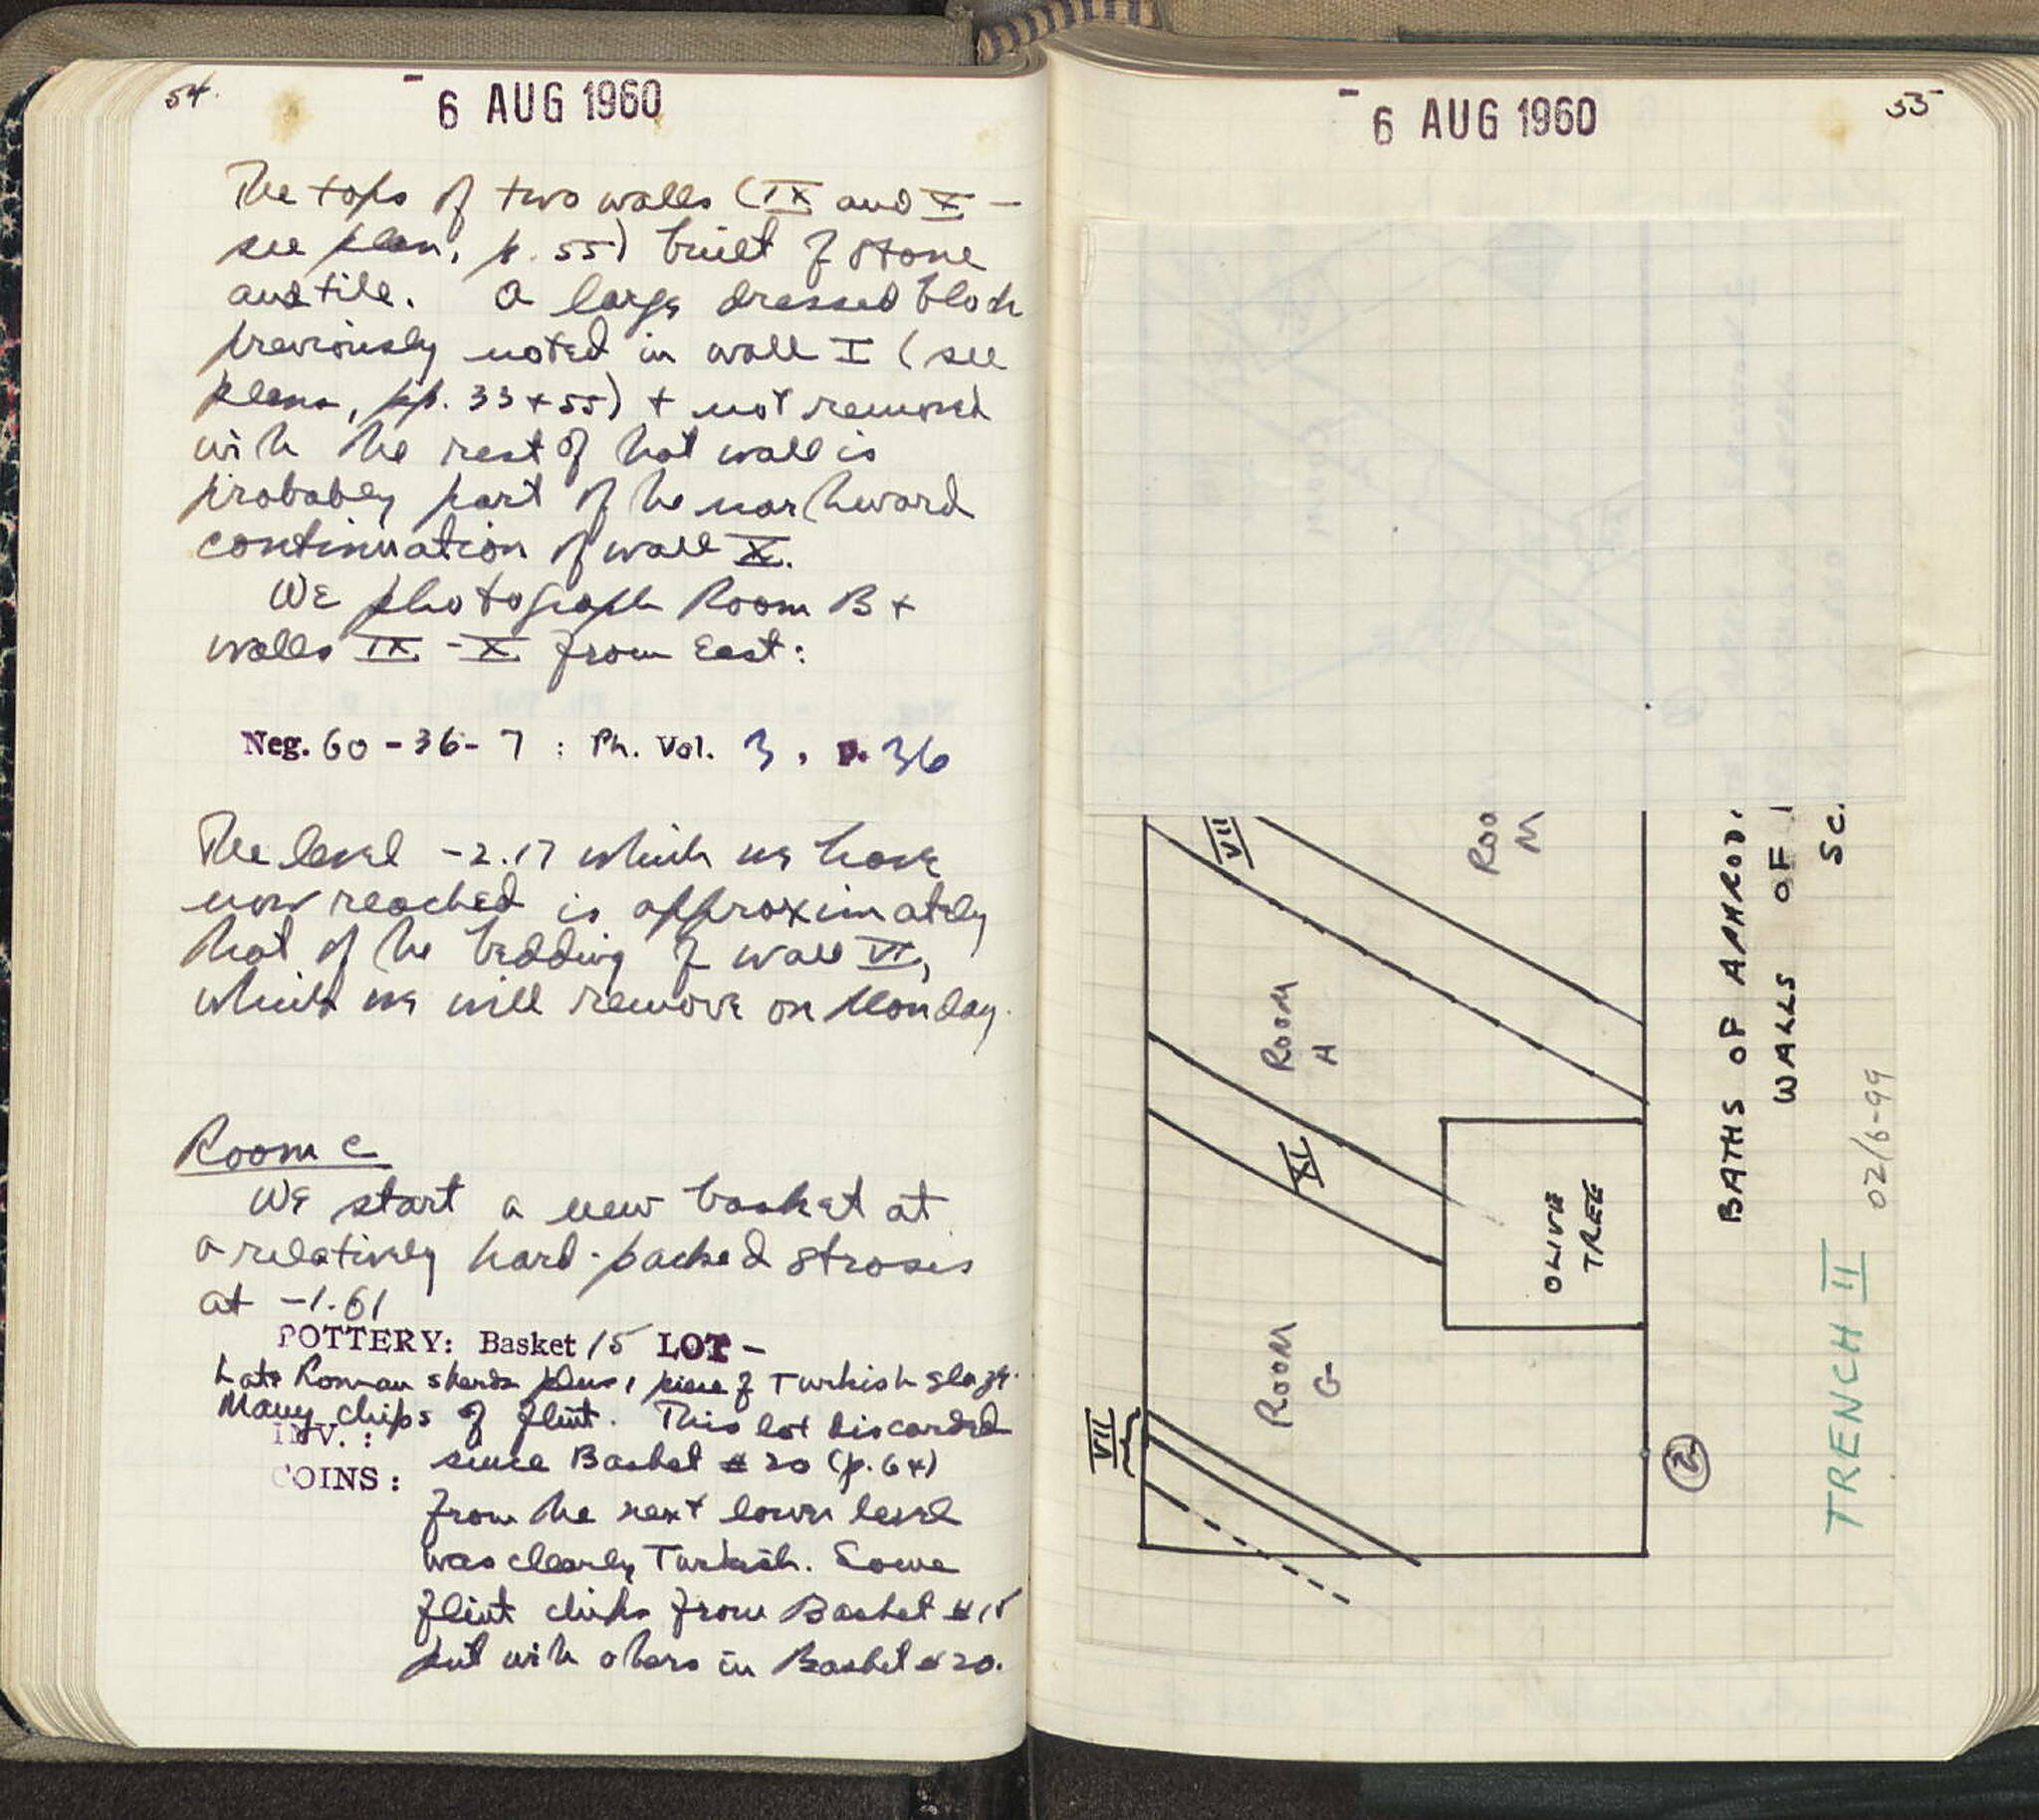 54.
- 6 AUG 1960
The tops of two walls (IX and X -
see plan, p. 55) built of stone
and tile. A large dressed block
previously noted in wall I (see
plans, pp. 33 + 55) + not removed
with the rest of that wall is
probably part of the northward
continuation of wall X.
We photograph Room B +
walls IX - X from East:
Neg. 60 - 36 - 7 : Ph. Vol. 3, p. 36
The level -2.17 which we have
now reached is approximately
that of the bedding of wall VI,
which we will remove on Monday.
Room C
We start a new basket at
a relatively hard-packed strosis
at -1.61
POTTERY: Basket 15 LOT -
Late Roman sherds plus 1 piece of Turkish glaze.
Many chips of flint. This lot discarded
INV.:
since Basket # 20 (p. 64)
COINS:
from the next lower level
was clearly Turkish. Some
flint chips from Basket # 15
put with others in Basket # 20.
- 6 AUG 1960
55
VII
ROOM
M
ROOM
H
XI
OLIVE
TREE
ROOM
G
VII
2
BATHS OF APHROD.
WALLS OF
SC.
02/6-99
TRENCH II